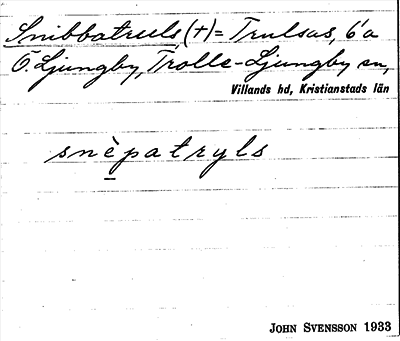 Snibbatruls (+) = Trulsas, 6¹a
Ö. Ljungby, Trolle-Ljungby sn,
Villands hd, Kristianstads län
snèpatryls
JOHN SVENSSON 1933